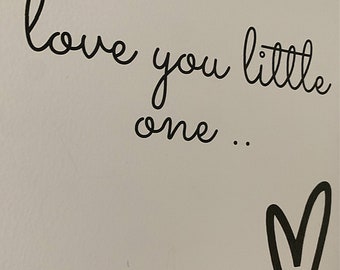 love you little
one ..